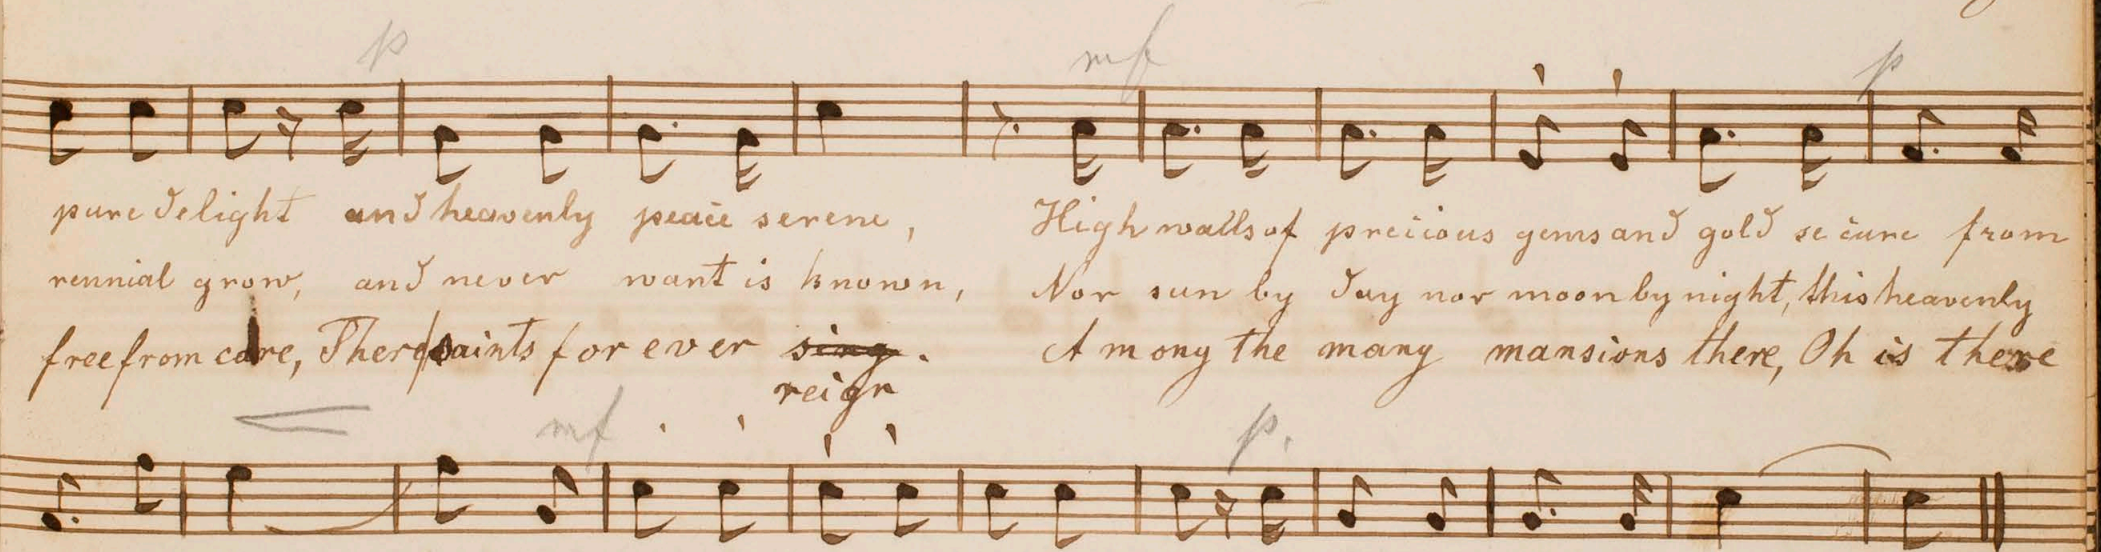 p mf p
pure delight and heavenly peace serene, High walls of precious gems and gold secure from
rennial grow, and never want is known, Nor sun by day nor moon by night, this heavenly
free from care, There saints for ever sing. Among the many mansions there, Oh is there
reign
mf p.